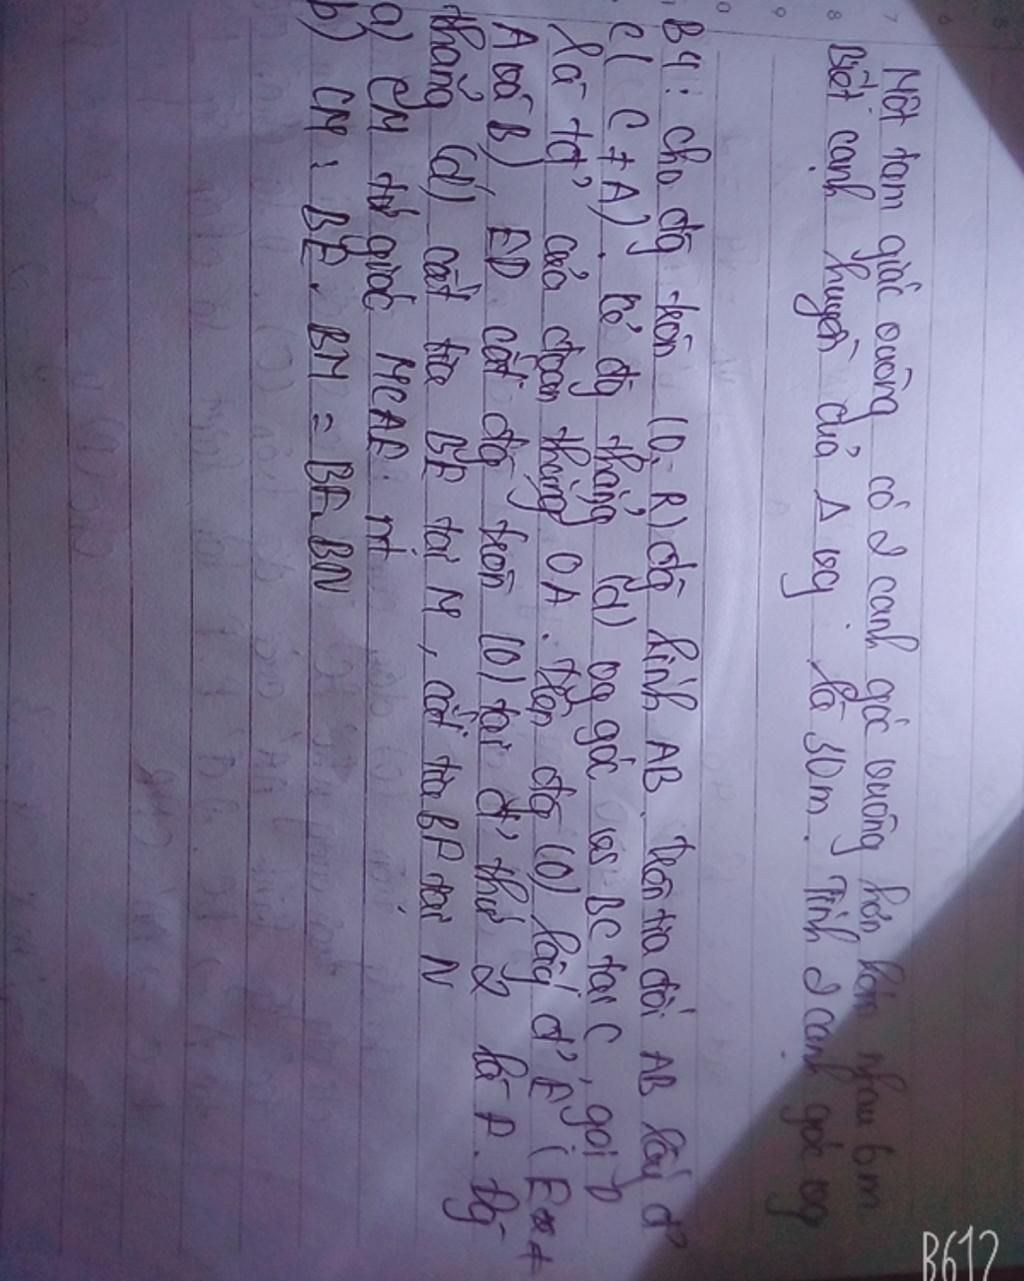 Một tam giác vuông có 2 cạnh góc vuông hơn kém nhau 6m
Biết cạnh huyền của Δ vg là 30m. Tính 2 cạnh góc vg
B4: cho đg tròn (O, R) đg kính AB. trên tia đối AB lấy đ'
C (C ≠ A). kẻ đg thẳng (d) vg góc vs BC tại C, gọi D
là tđ' của đoạn thẳng OA. trên đg (O) lấy đ' E (E ≠
A và B), ED cắt đg tròn (O) tại đ' thứ 2 là F. Đg
thẳng (d) cắt tia BE tại M, cắt tia BF tại N
a) CM tứ giác MCAE nt
b) CM: BE. BM = BF. BN
B612